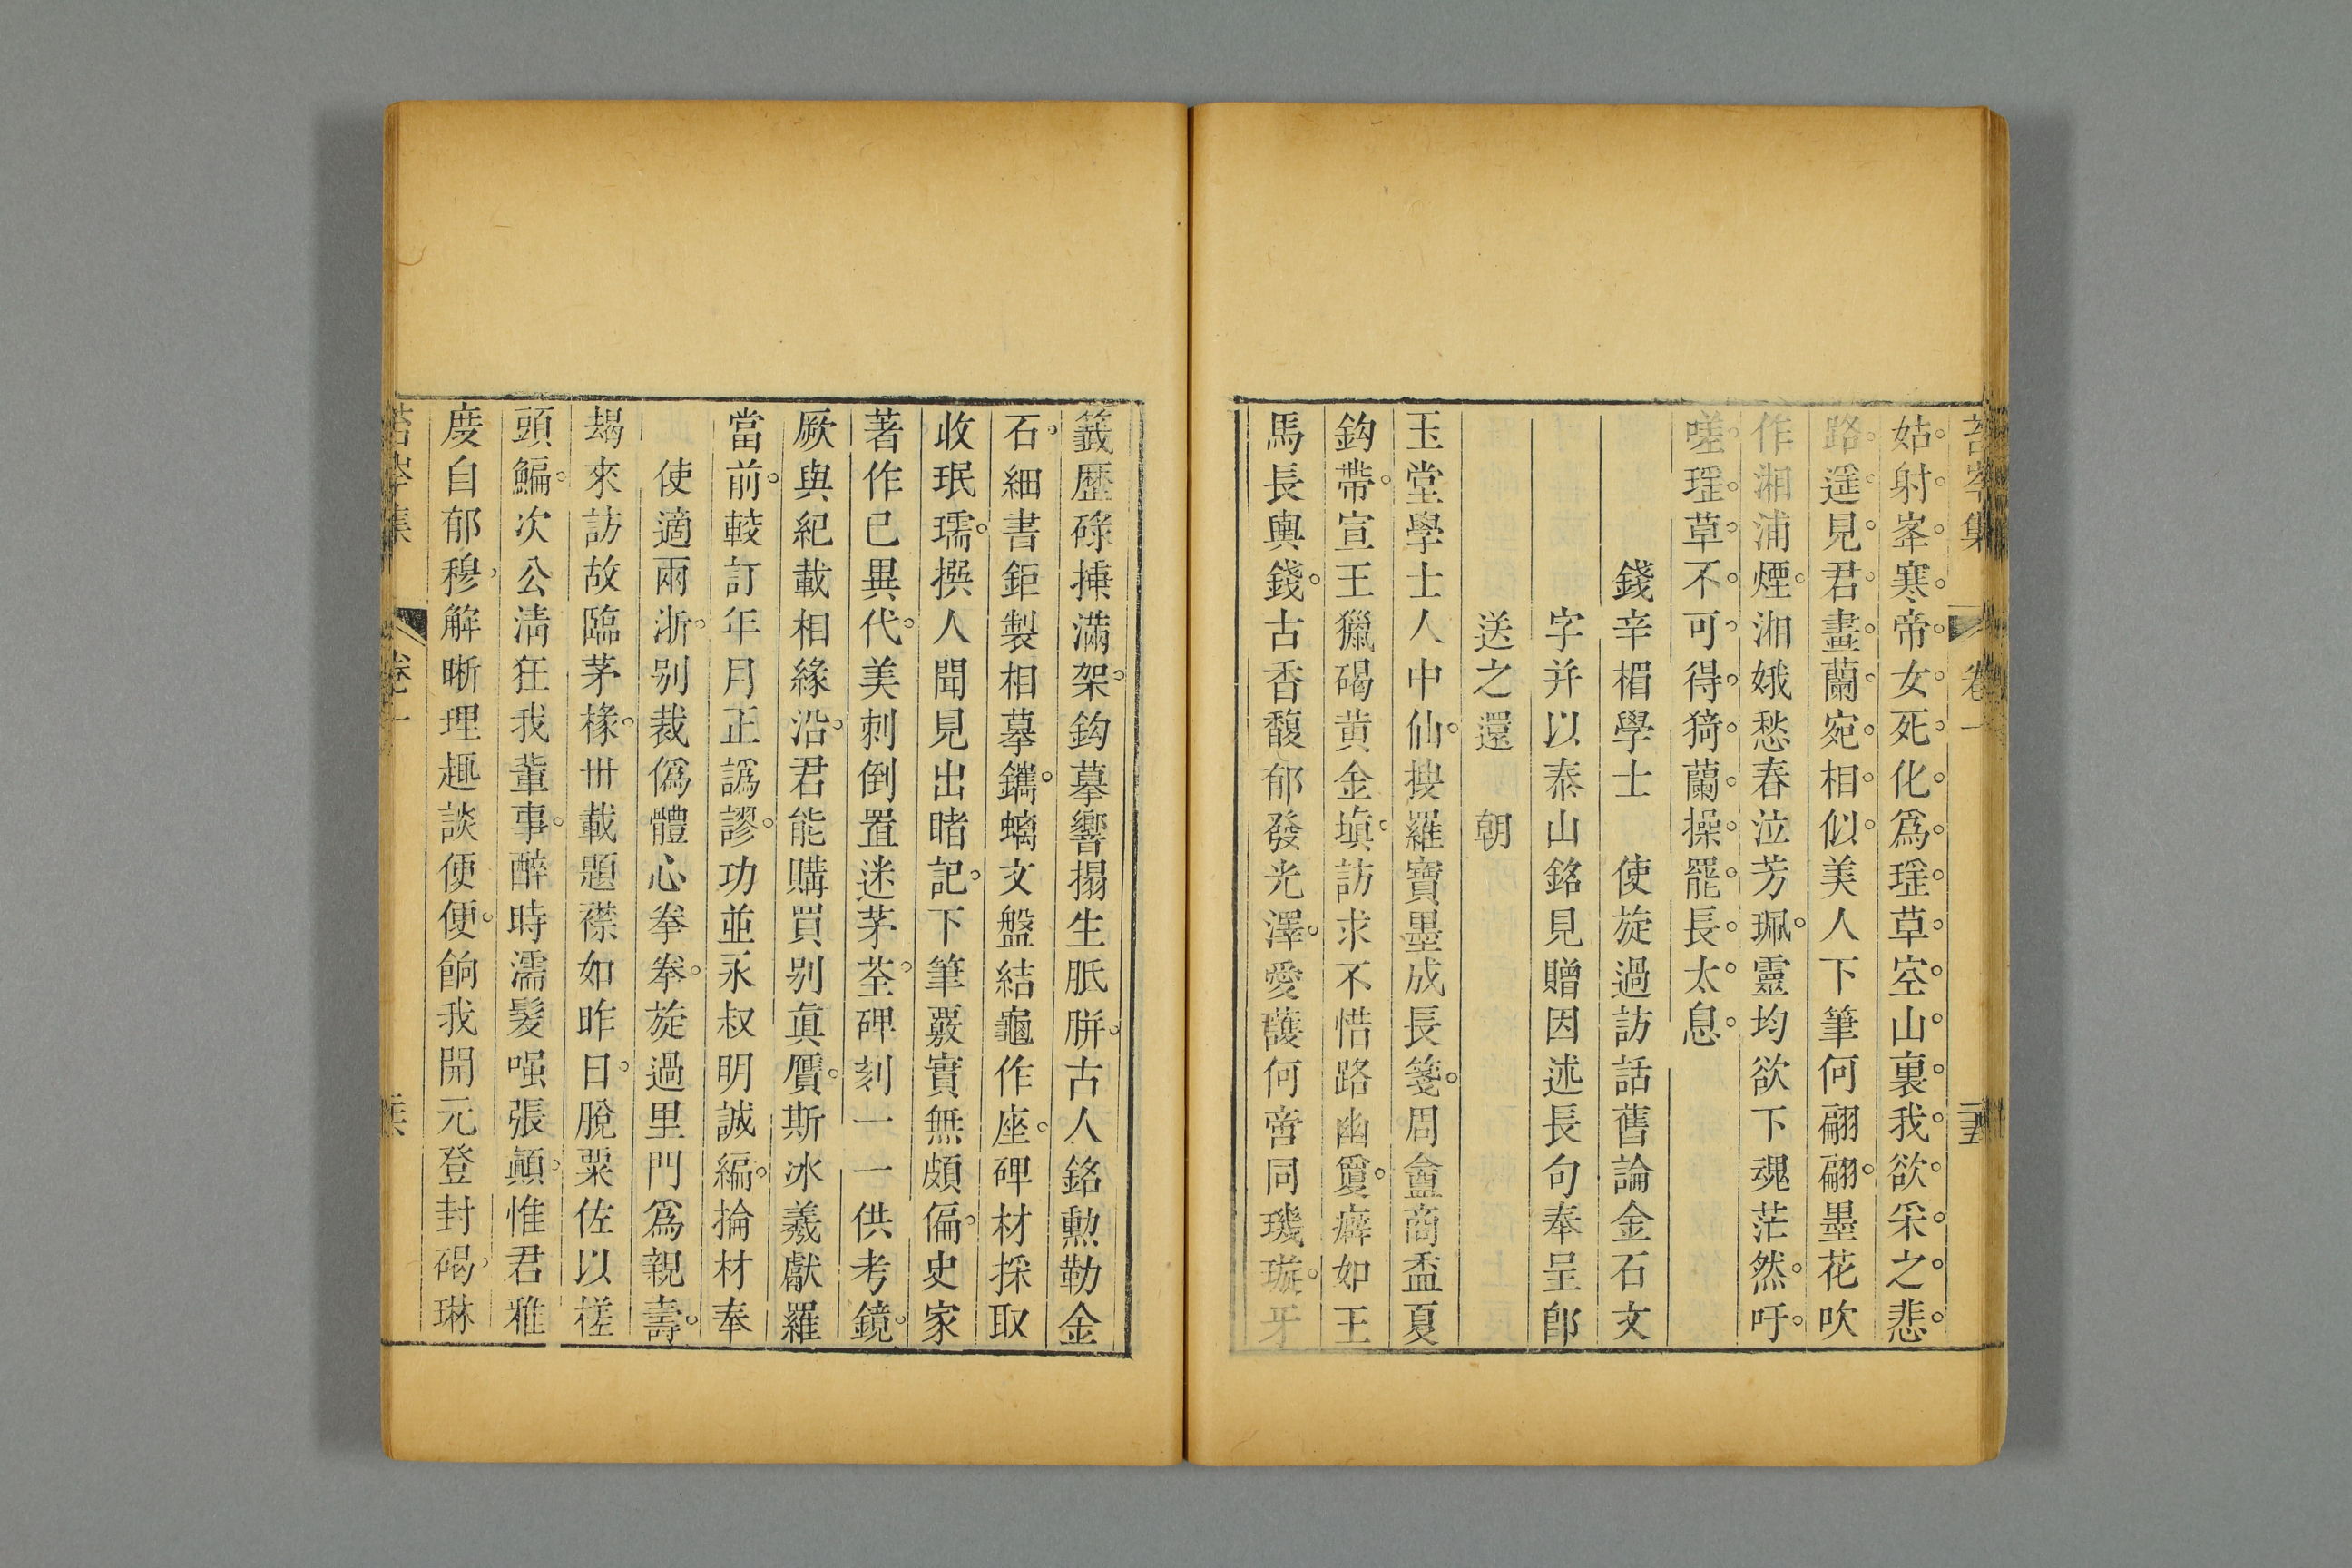 苔岑集 卷一
姑射峯寒帝女死化爲瑶草空山裏我欲采之悲
路遥見君畫蘭宛相似美人下筆何翩翩墨花吹
作湘浦煙湘娥愁春泣芳珮靈均欲下魂茫然吁
嗟瑶草不可得猗蘭操罷長太息
錢辛楣學士 使旋過訪話舊論金石文
字并以泰山銘見贈因述長句奉呈卽
送之還 朝
玉堂學士人中仙搜羅寶墨成長箋周盦商盉夏
鈎帶宣王獵碣黃金塡訪求不惜路幽夐癖如王
馬長輿錢古香馥郁發光澤愛護何啻同璣璇牙
籤歷碌捶滿架鈎摹響搨生胝胼古人銘勲勒金
石細書鉅製相摹鐫螭文盤結龜作座碑材採取
收珉瓀撰人聞見出睹記下筆覈實無頗偏史家
著作已異代美刺倒置迷茅荃碑刻一一供考鏡
厥與紀載相緣沿君能購買别眞贋斯冰羲獻羅
當前較訂年月正譌謬功並永叔明誠編掄材奉
使適兩浙别裁僞體心拳拳旋過里門爲親壽
朅來訪故臨茅椽卅載題襟如昨日脫粟佐以槎
頭鯿次公淸狂我輩事醉時濡髮嗤張顚惟君雅
度自郁穆解晰理趣談便便餉我開元登封碣琳
苔岑集 卷一